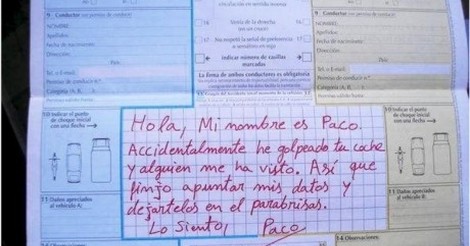 circulación en sentido inverso
9 Conductor
NOMBRE:
Apellidos:
Fecha de nacimiento:
Dirección:
País:
Tel. o E-mail:
Permiso de conducir n.º
Categoría (A, B, ...)
Permiso válido hasta:
16
Venía de la derecha
(en un cruce)
16
17
No respetó la señal de preferencia
o semáforo en rojo
17
indicar número de casillas
marcadas
La firma de ambos conductores es obligatoria
9 Conductor
NOMBRE:
Apellidos:
Fecha de nacimiento:
Dirección:
País:
Tel. o E-mail:
Permiso de conducir n.º
Categoría (A, B, ...)
Permiso válido hasta:
10 Indicar el punto
de choque inicial
con una flecha
Hola, Mi nombre es Paco.
Accidentalmente he golpeado tu coche
y alguien me ha visto. Así que
finjo apuntar mis datos y
dejartelos en el parabrisas.
Lo siento,
Paco
10 Indicar el punto
de choque inicial
con una flecha
11 Daños apreciados
al vehículo A:
11 Daños apreciados
al vehículo B:
14 Observaciones